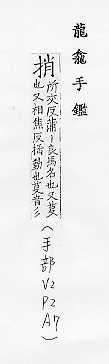 龍龕手鑑
捎
所交反蒲ー良馬名也又夐
也又相焦反揺動也夐音ミ
(手部V2P2A7)